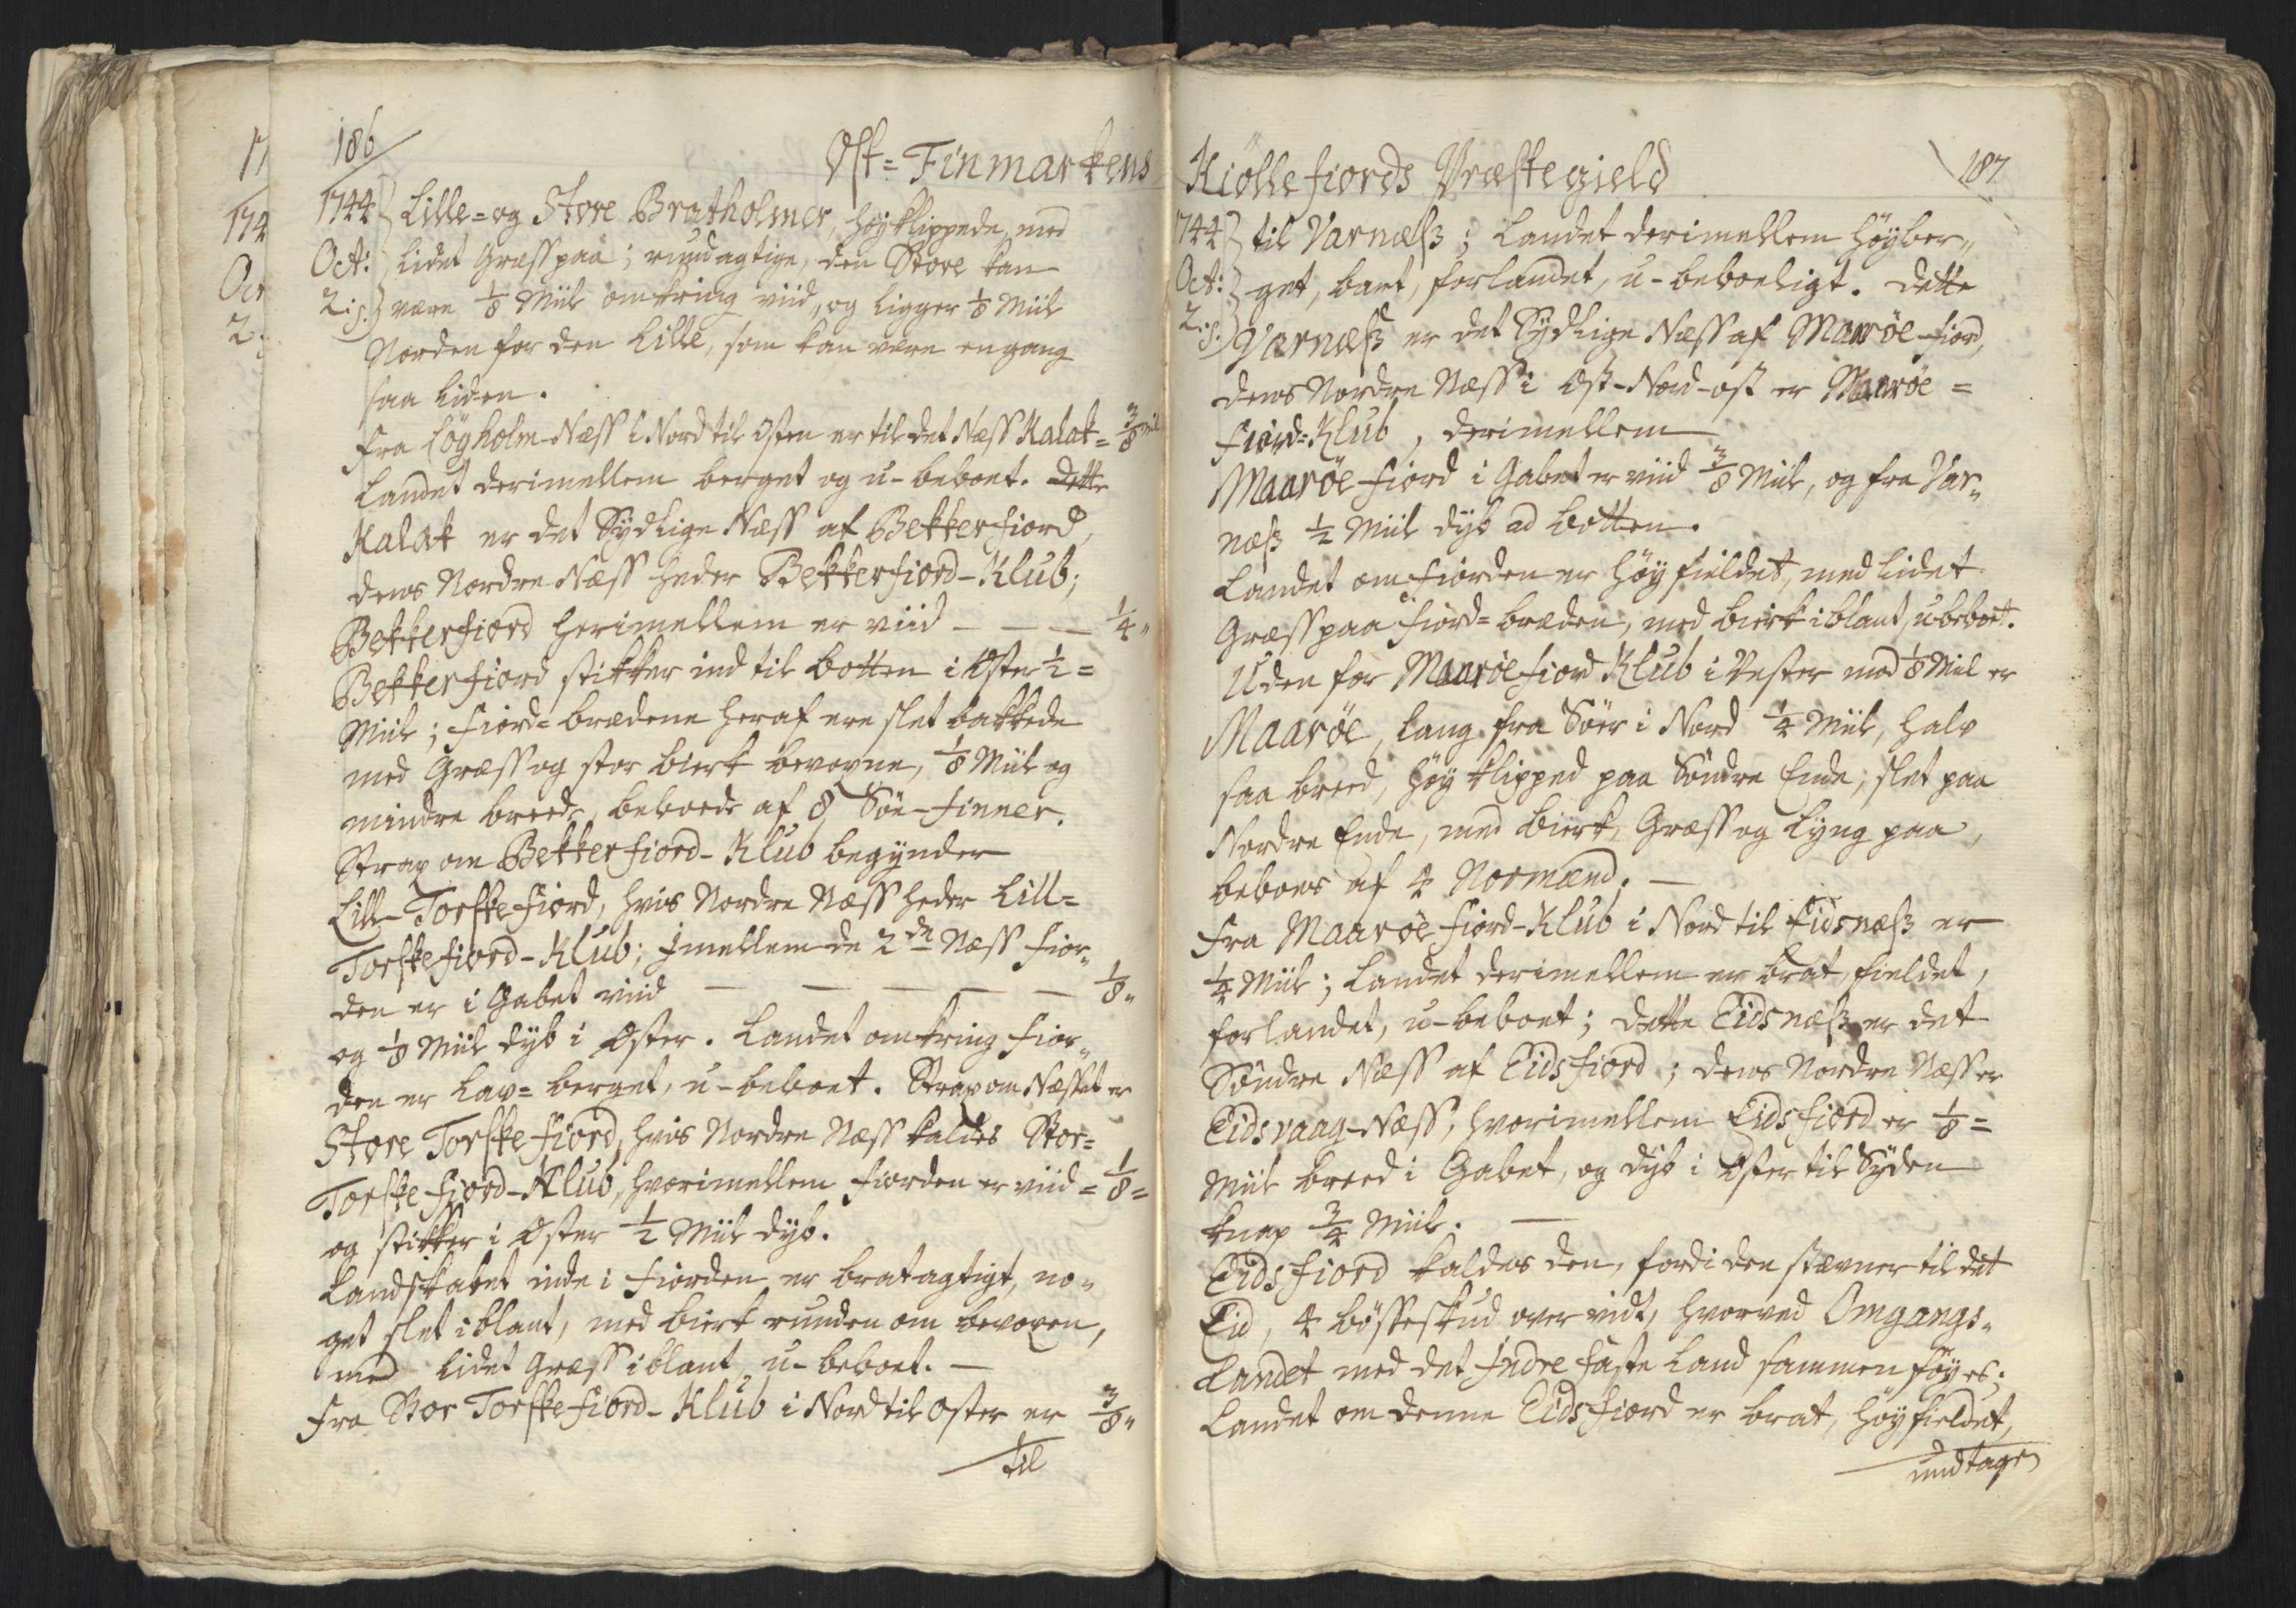 186
Ost=Finmarkens
1744 Lille= og Store Bratholmer, høyklippede, med
Oct: lidet Græss paa; rundagtige, den Store kan
2:s. være 1/8 Miil omkring viid, og ligger 1/8 Miil
Norden for den Lille, som kan være engang
saa liden.
Fra Løgholm-Næss i Nord til Osten er til det Næss Kalak= 3/8 mil
Landet derimellem berget og u-beboet. Dette
Kalak er det Sydlige Næss af Bekkerfiord,
dens Nordre Næss heder Bekkerfiord-Klub;
Bekkerfiord herimellem er viid - - - 1/4 "
Bekkerfiord stikker ind til botten i Oster 1/2=
Miil; Fiord=brædene heraf ere slet bakkede
med Græss og stor birk bevoxne, 1/8 Miil og
mindre breede, beboede af 8 Søe-Finner.
Strax om Bekkerfiord-Klub begynder
Lille-Torskefiord, hvis Nordre Næss heder Lill=
Torskefiord-Klub; Jmellem de 2de Næss Fior„
den er i Gabet viid — — — — — 1/8 "
og 1/8 Miil dyb i Oster. Landet omkring Fior„
den er lav=berget, u-beboet. Strax om Næsset er
Store Torskefiord, hvis Nordre Næss kaldes Stor=
Torskefiord-Klub, hvorimellem Fiorden er viid = 1/8 =
og stikker i Oster 1/2 Miil dyb.
Landskabet inde i Fiorden er bratagtigt, no„
get slet iblant, med birk runden om bevoxen,
med lidet Græss iblant, u-beboet. —
Fra Stor Torskefiord-Klub i Nord til Oster er 3/8 "
til
Kiøllefiords Præstegield
187
1744 til Varnæss; Landet derimellem høyber„
Oct: get, bart, forlandet, u-beboeligt. Dette
2:s. Varnæss er det Sydlige Næss af Maarøe-fiord,
dens Nordre Næss i Ost-Nord-ost er Maarøe=
Fiord=Klub, derimellem
Maarøefiord i Gabet er viid 3/8 Miil, og fra Var„
næss 1/2 Miil dyb ad botten.
Landet om Fiorden er høyfieldet, med lidet
Græss paa Fiord=bræden, med birk iblant, ubeboet.
Uden for Maarøefiord Klub i Vester med 1/8 Miil er
Maarøe, lang fra Sør i Nord 1/4 Miil, halv
saa breed, høy klipped paa Søndre Ende, slet paa
Nordre Ende, med birk, Græss og Lyng paa,
beboes af 4 Normænd. —
Fra Maarøefiord-Klub i Nord til Eidsnæss er
1/4 Miil; Landet derimellem er brat, fieldet,
forlandet, u-beboet; dette Eidsnæss er det
Søndre Næss af Eidsfiord; dens Nordre Næss er
Eidsvaag-Næss, hvorimellem Eidsfiord er 1/8=
Miil breed i Gabet, og dyb i Oster til Syden
knap 3/4 Miil. —
Eidsfiord kaldes den, fordi den stævner til det
Eid, 4 bøsseskud over vidt, hvorved Omgangs„
Landet med det Jndre faste Land sammenføyes;
Landet om denne Eidsfiord er brat, høyfieldet,
undtagen